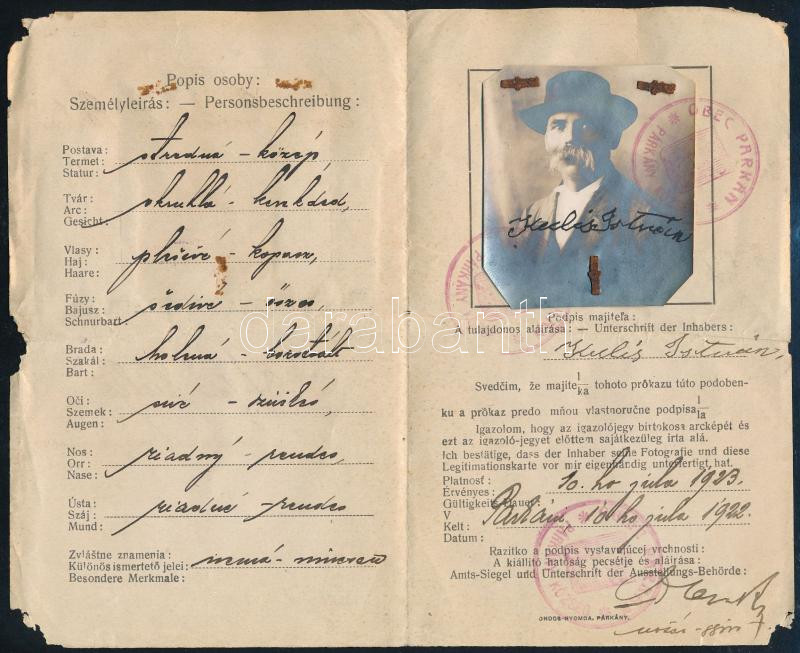 Popis osoby:
Személyleirás: — Personsbeschreibung:
Postava:
Termet:
Statur:
stredná – közép
Tvár:
Arc:
Gesicht:
okruhlá – kerekded,
Vlasy:
Haj:
Haare:
plešivé – kopasz,
Fúzy:
Bajusz:
Schnurbart:
šedivé – őszes,
Brada:
Szakál:
Bart:
holená – borotvált
Oči:
Szemek:
Augen:
sivé – szürkés,
Nos:
Orr:
Nase:
riadný – rendes,
Ústa:
Száj:
Mund:
riadné – rendes
Zvláštne znamenia:
Különös ismertető jelei:
Besondere Merkmale:
nemá – nincsen
OBEC PARKAN
PÁRKÁNY
István
Podpis majiteľa:
A tulajdonos aláirása: — Unterschrift der Inhabers:
István,
Svedčim, že majite l/ka tohoto prôkazu túto podoben-
ku a prôkaz predo mňou vlastnoručne podpisa l/la
Igazolom, hogy az igazolójegy birtokosa arcképét és
ezt az igazoló-jegyet előttem sajátkezüleg irta alá.
Ich bestätige, dass der Inhaber seine Fotografie und diese
Legitimationskarte vor mir eigenhändig unterfertigt hat.
Platnosť:
Érvényes:
Gültigkeits Dauer:
10. ho júla 1923.
V
Kelt:
Datum:
Párkáni, 10 ho júla 1922.
Razitko a podpis vystavujúcej vrchnosti:
A kiállitó hatóság pecsétje és aláirása:
Amts-Siegel und Unterschrift der Ausstellungs-Behörde:
ONDOS-NYOMDA, PÁRKÁNY.
darabanth